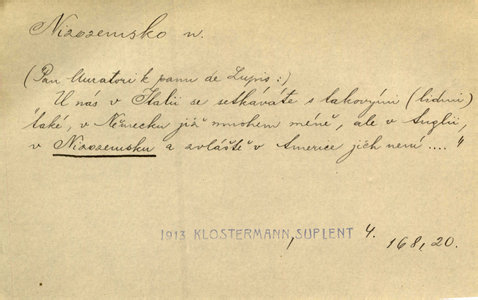 Nizozemsko n.
(Pan Muratori k panu de Lupis:)
U nás v Italii se setkáváte s takovými (lidmi)
také, v Německu již mnohem méně, ale v Anglii,
v Nizozemsku a zvláště v Americe jich není .... "
1913 KLOSTERMANN, SUPLENT 4.
168, 20.